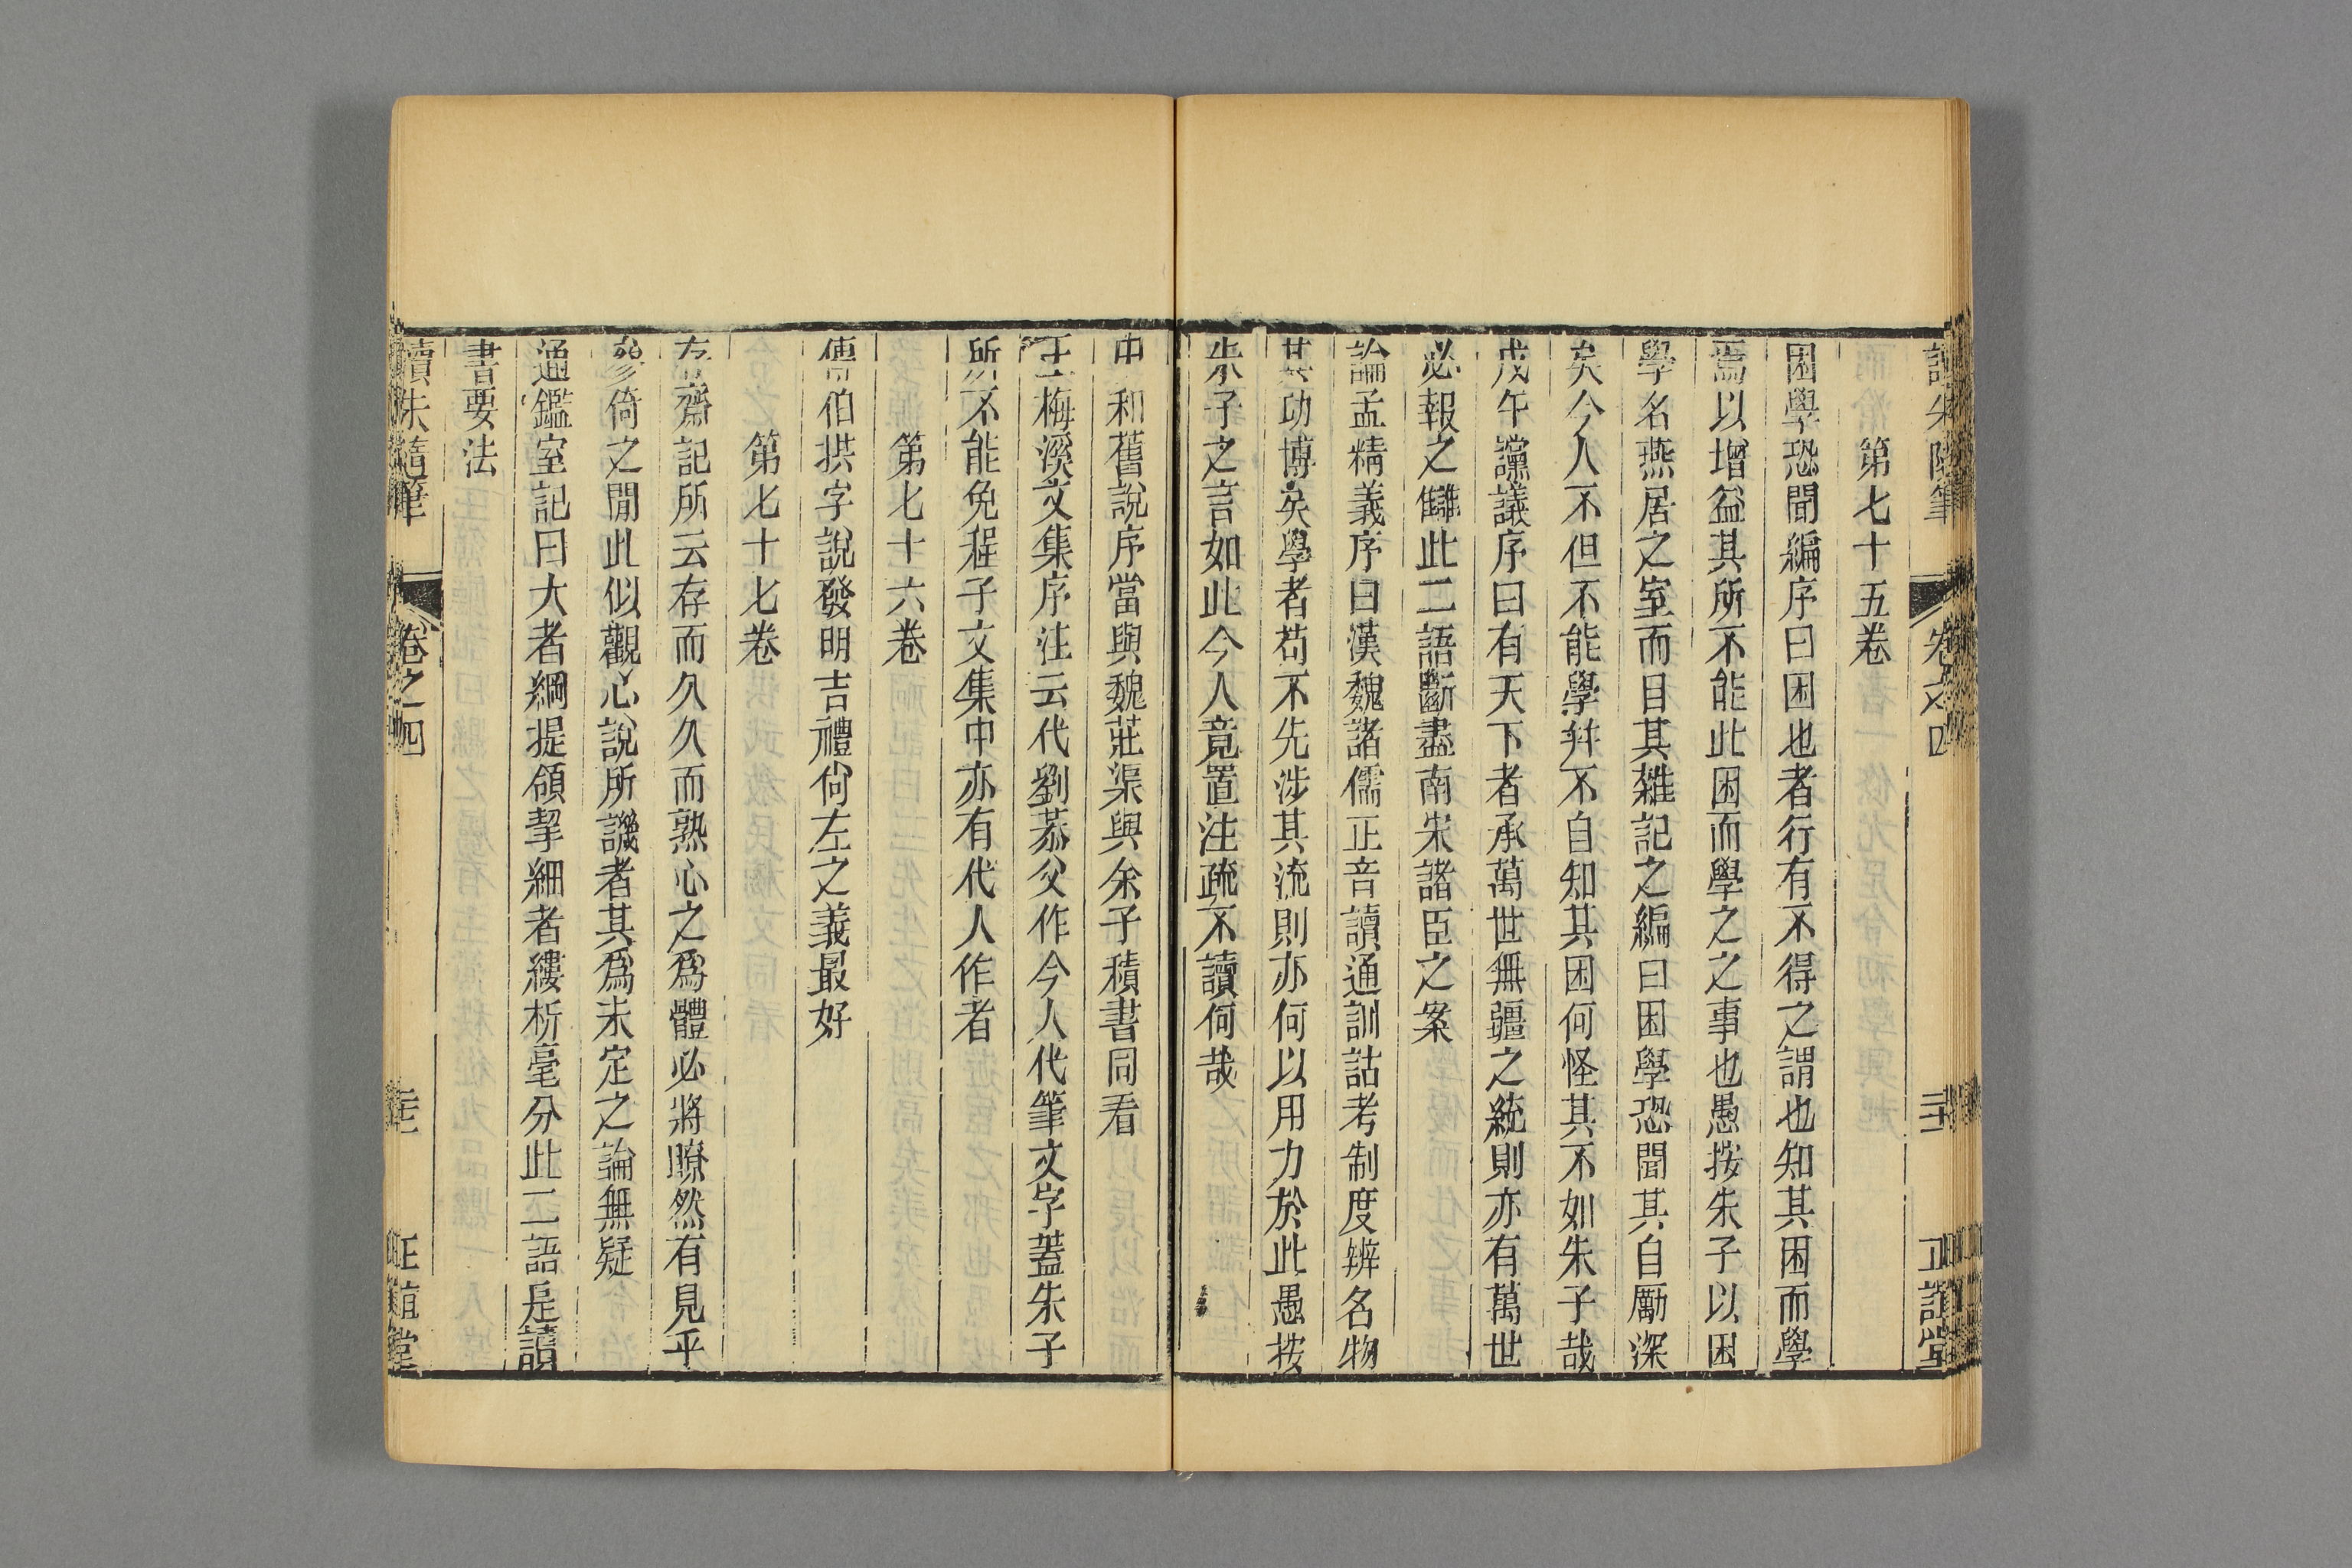 讀朱隨筆 卷之四 正誼堂
第七十五卷
困學恐聞編序曰困也者行有不得之謂也知其困而學
焉以增益其所不能此困而學之之事也愚按朱子以困
學名燕居之室而目其雜記之編曰困學恐聞其自勵深
矣今人不但不能學幷不自知其困何怪其不如朱子哉
戊午讜議序曰有天下者承萬世無疆之統則亦有萬世
必報之讎此二語斷盡南宋諸臣之案
論孟精義序曰漢魏諸儒正音讀通訓詁考制度辨名物
其功博矣學者苟不先涉其流則亦何以用力於此愚按
朱子之言如此今人竟置注疏不讀何哉
中和舊說序當與魏莊渠與余子積書同看
王梅溪文集序注云代劉恭父作今人代筆文字蓋朱子
所不能免程子文集中亦有代人作者
第七十六卷
傅伯拱字說發明吉禮尙左之義最好
第七十七卷
存齋記所云存而久久而熟心之爲體必將瞭然有見乎
參倚之閒此似觀心說所譏者其爲未定之論無疑
通鑑室記曰大者綱提領挈細者縷析毫分此二語是讀
書要法
讀朱隨筆 卷之四 正誼堂